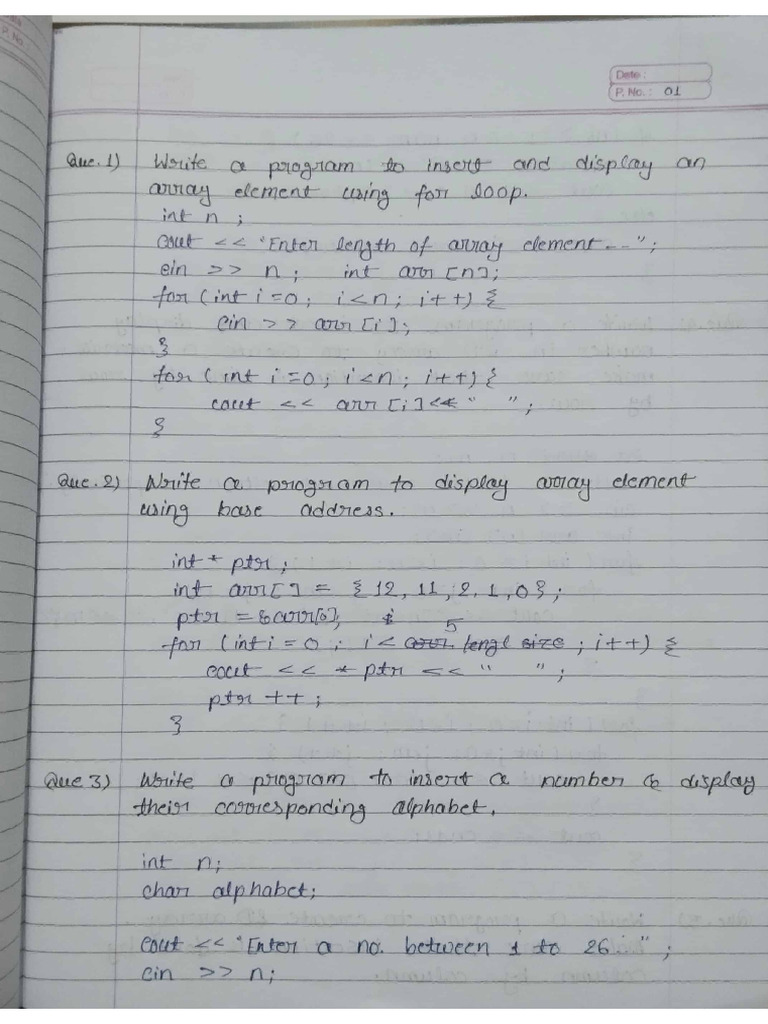 Date :
P. No. : 01
Que. 1) Write a program to insert and display an
array element using for loop.
int n ;
cout << "Enter length of array element..." ;
cin >> n ; int arr [n];
for (int i=0 ; i<n ; i++) {
cin >> arr [i] ;
}
for ( int i=0 ; i<n ; i++) {
cout << arr [i] << " " ;
}
Que. 2) Write a program to display array element
using base address.
int * ptr ;
int arr[ ] = {12, 11, 2, 1, 0} ;
ptr = &arr[0];
for (int i = 0 ; i < 5 ; i++) {
cout << * ptr << " " ;
ptr ++ ;
}
Que 3) Write a program to insert a number & display
their corresponding alphabet.
int n;
char alphabet;
cout << "Enter a no. between 1 to 26 " ;
cin >> n;